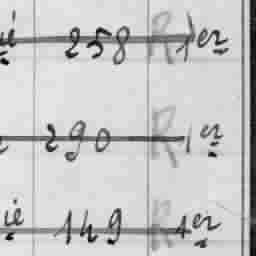 ié 258 R 1er
290 R 1er
ié 149 R 1er